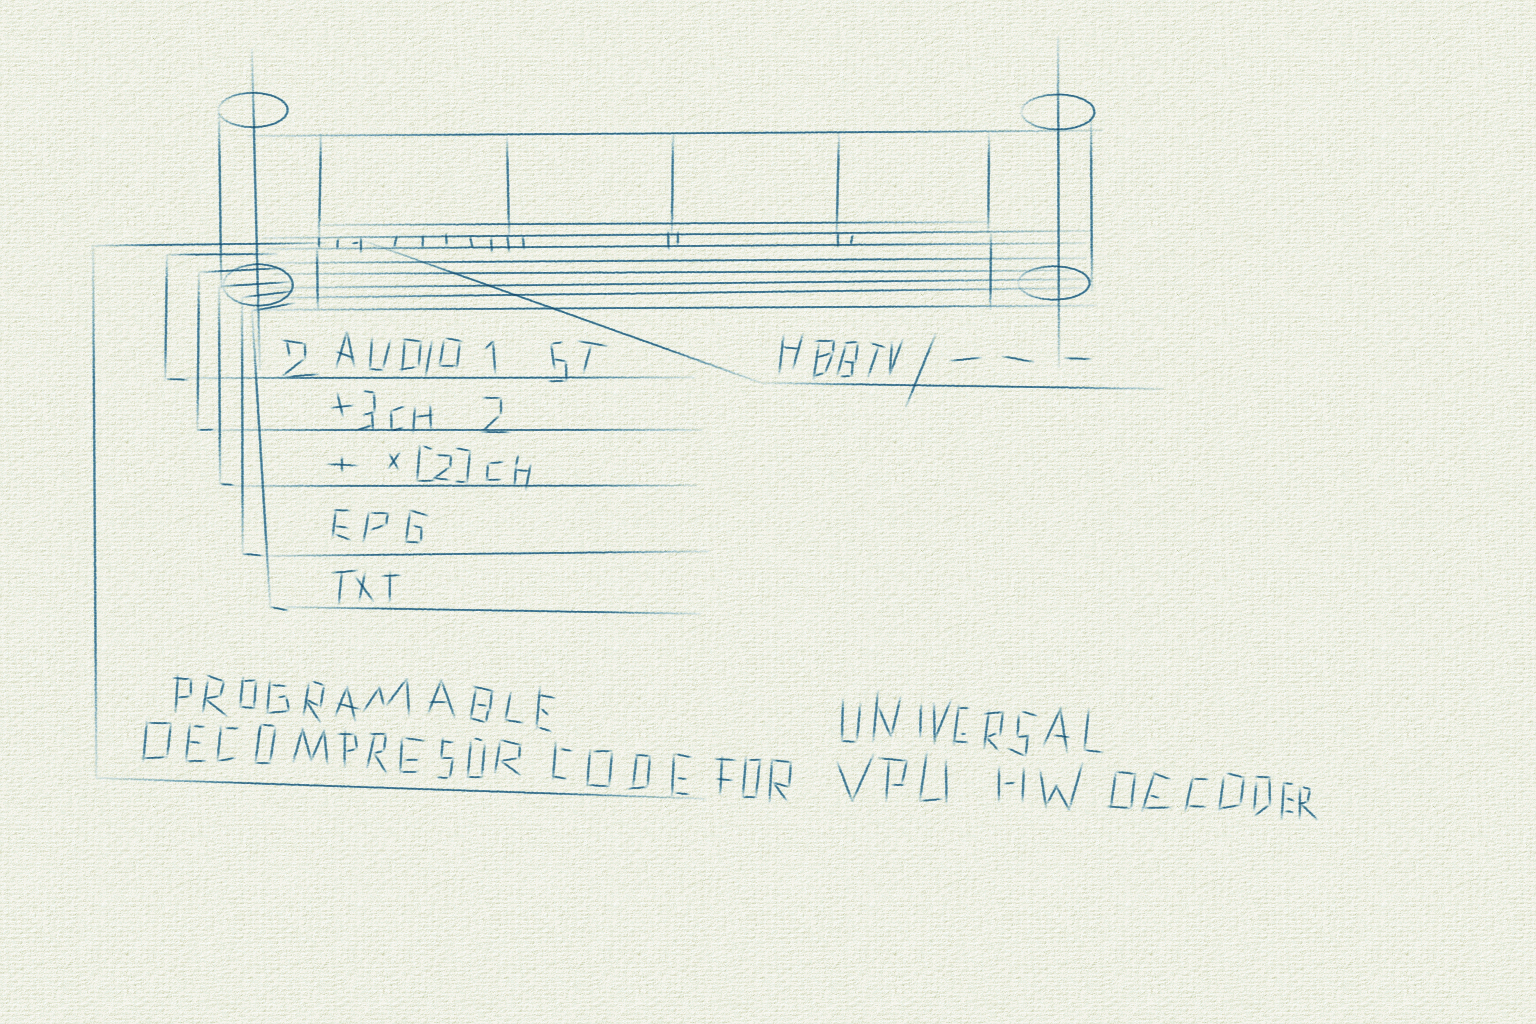 2 AUDIO 1 ST
HBBTV/ - - -
+3CH 2
+ x[2]CH
EPG
TXT
PROGRAMABLE
DECOMPRESOR CODE FOR
UNIVERSAL
VPU HW DECODER